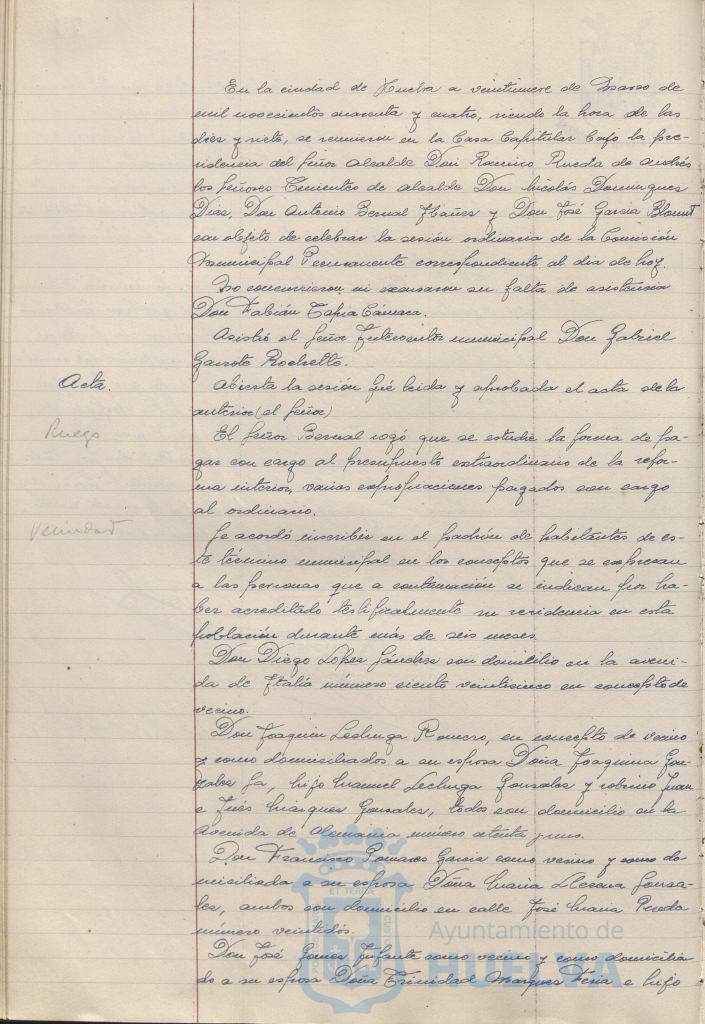 En la ciudad de Huelva a veintinueve de Marzo de
mil novecientos cuarenta y cuatro, siendo la hora de las
diez y siete, se reunieron en la Casa Capitular bajo la pre-
sidencia del Señor Alcalde Don Ramiro Rueda de Andrés
los Señores Tenientes de Alcalde Don Nicolás Dominguez
Diaz, Don Antonio Bernal Ibañez y Don José Garcia Blount
con objeto de celebrar la sesión ordinaria de la Comisión
Municipal Permanente correspondiente al dia de hoy.
No concurrieron ni excusaron su falta de asistencia
Don Fabián Tapia Cámara.
Asistió el Señor Interventor municipal Don Gabriel
Garrote Rochette.
Acta.
Abierta la sesión fué leida y aprobada el acta de la
anterior (el Señor)
Ruego
El Señor Bernal rogó que se estudie la forma de pa-
gar con cargo al presupuesto extraordinario de la refor-
ma interior, varias expropiaciones pagados con cargo
al ordinario.
Vecindad
Se acordó inscribir en el padrón de habitantes de es-
te término municipal en los conceptos que se expresan
a las personas que a continuación se indican por ha-
ber acreditado testificalmente su residencia en esta
población durante más de seis meses.
Don Diego López Sánchez con domicilio en la aveni-
da de Italia número ciento veinticinco en concepto de
vecino.
Don Joaquin Lechuga Romero, en concepto de vecino
y como domiciliados a su esposa Doña Joaquina Gon-
zalez, hijo Manuel Lechuga Gonzalez y sobrino Juan
e Inés Márquez Gonzalez, todos con domicilio en la
Avenida de Alemania número ochenta y uno.
Don Francisco Pomares Garcia como vecino y como do-
miciliada a su esposa Doña Maria Llerena Gonza-
lez, ambos con domicilio en calle José Maria Pereda
número veintidós.
Don José Gomez Infante como vecino y como domicilia
do a su esposa Doña Trinidad Marquez Feria e hijo
Ayuntamiento de
HUELVA